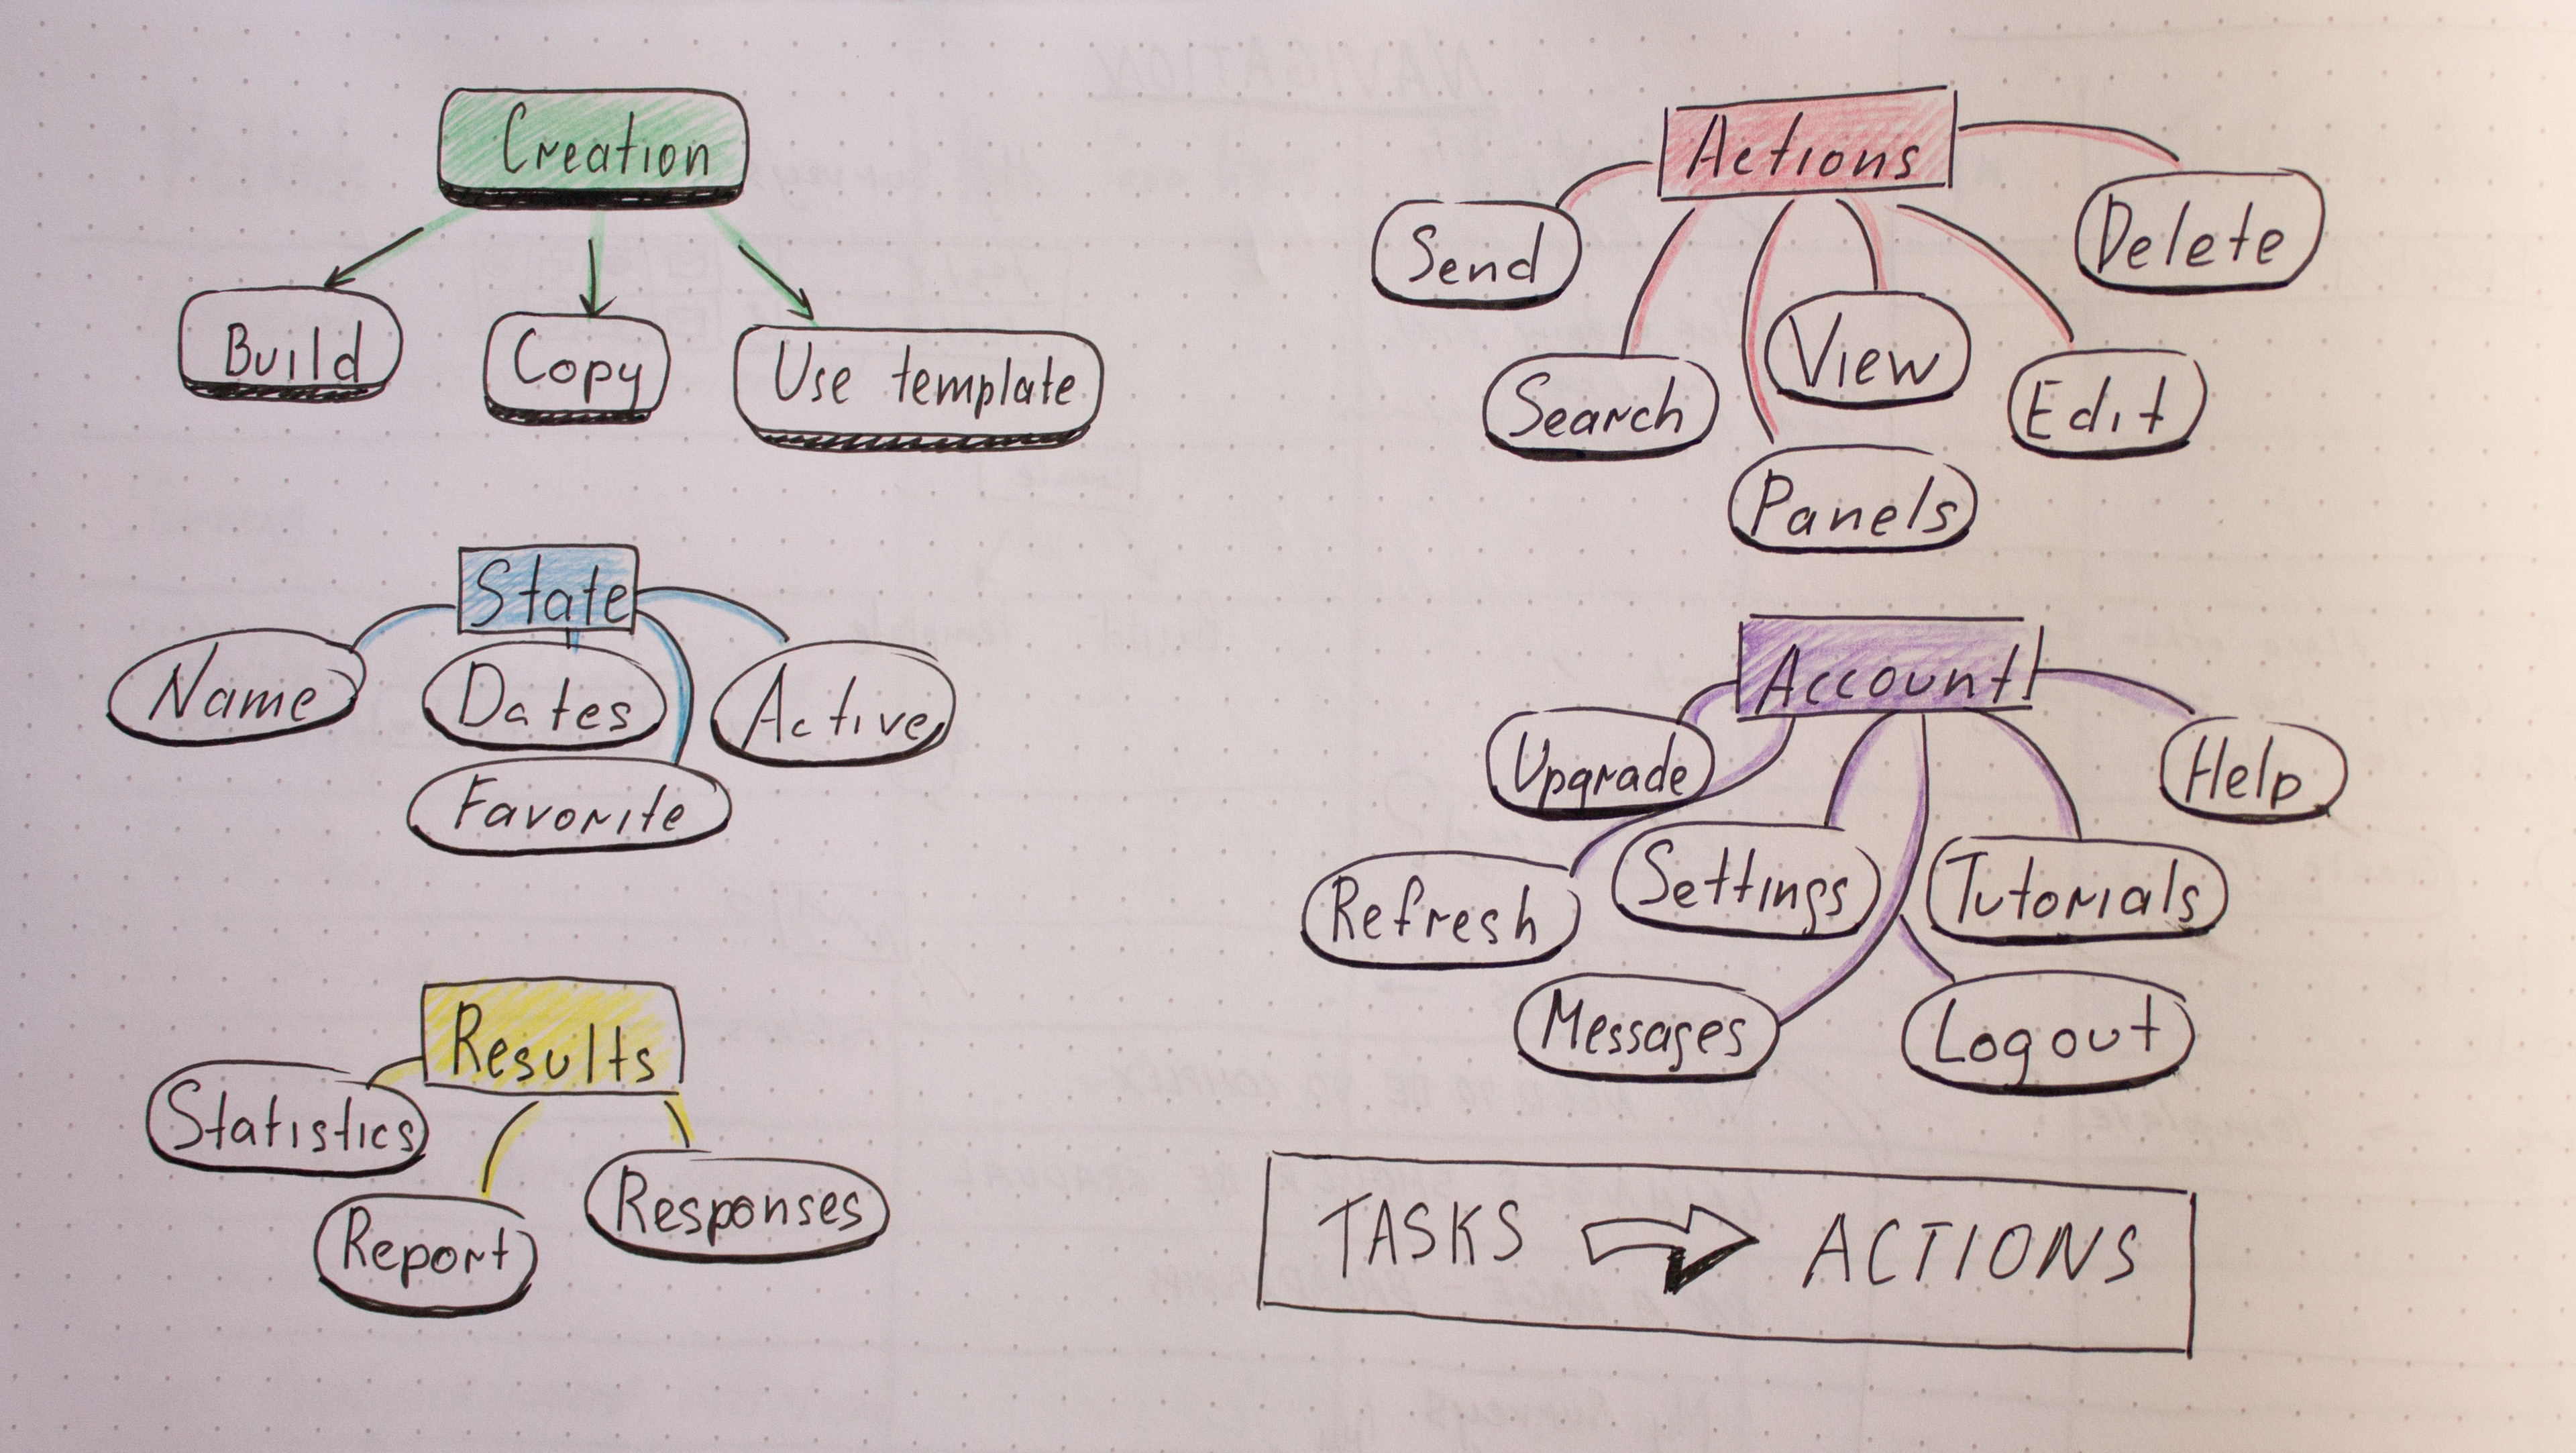 Creation
Build
Copy
Use template
State
Name
Dates
Active
Favorite
Results
Statistics
Report
Responses
Actions
Send
Search
Panels
View
Edit
Delete
Account
Upgrade
Refresh
Settings
Messages
Tutorials
Logout
Help
TASKS ACTIONS
NAVIGATION